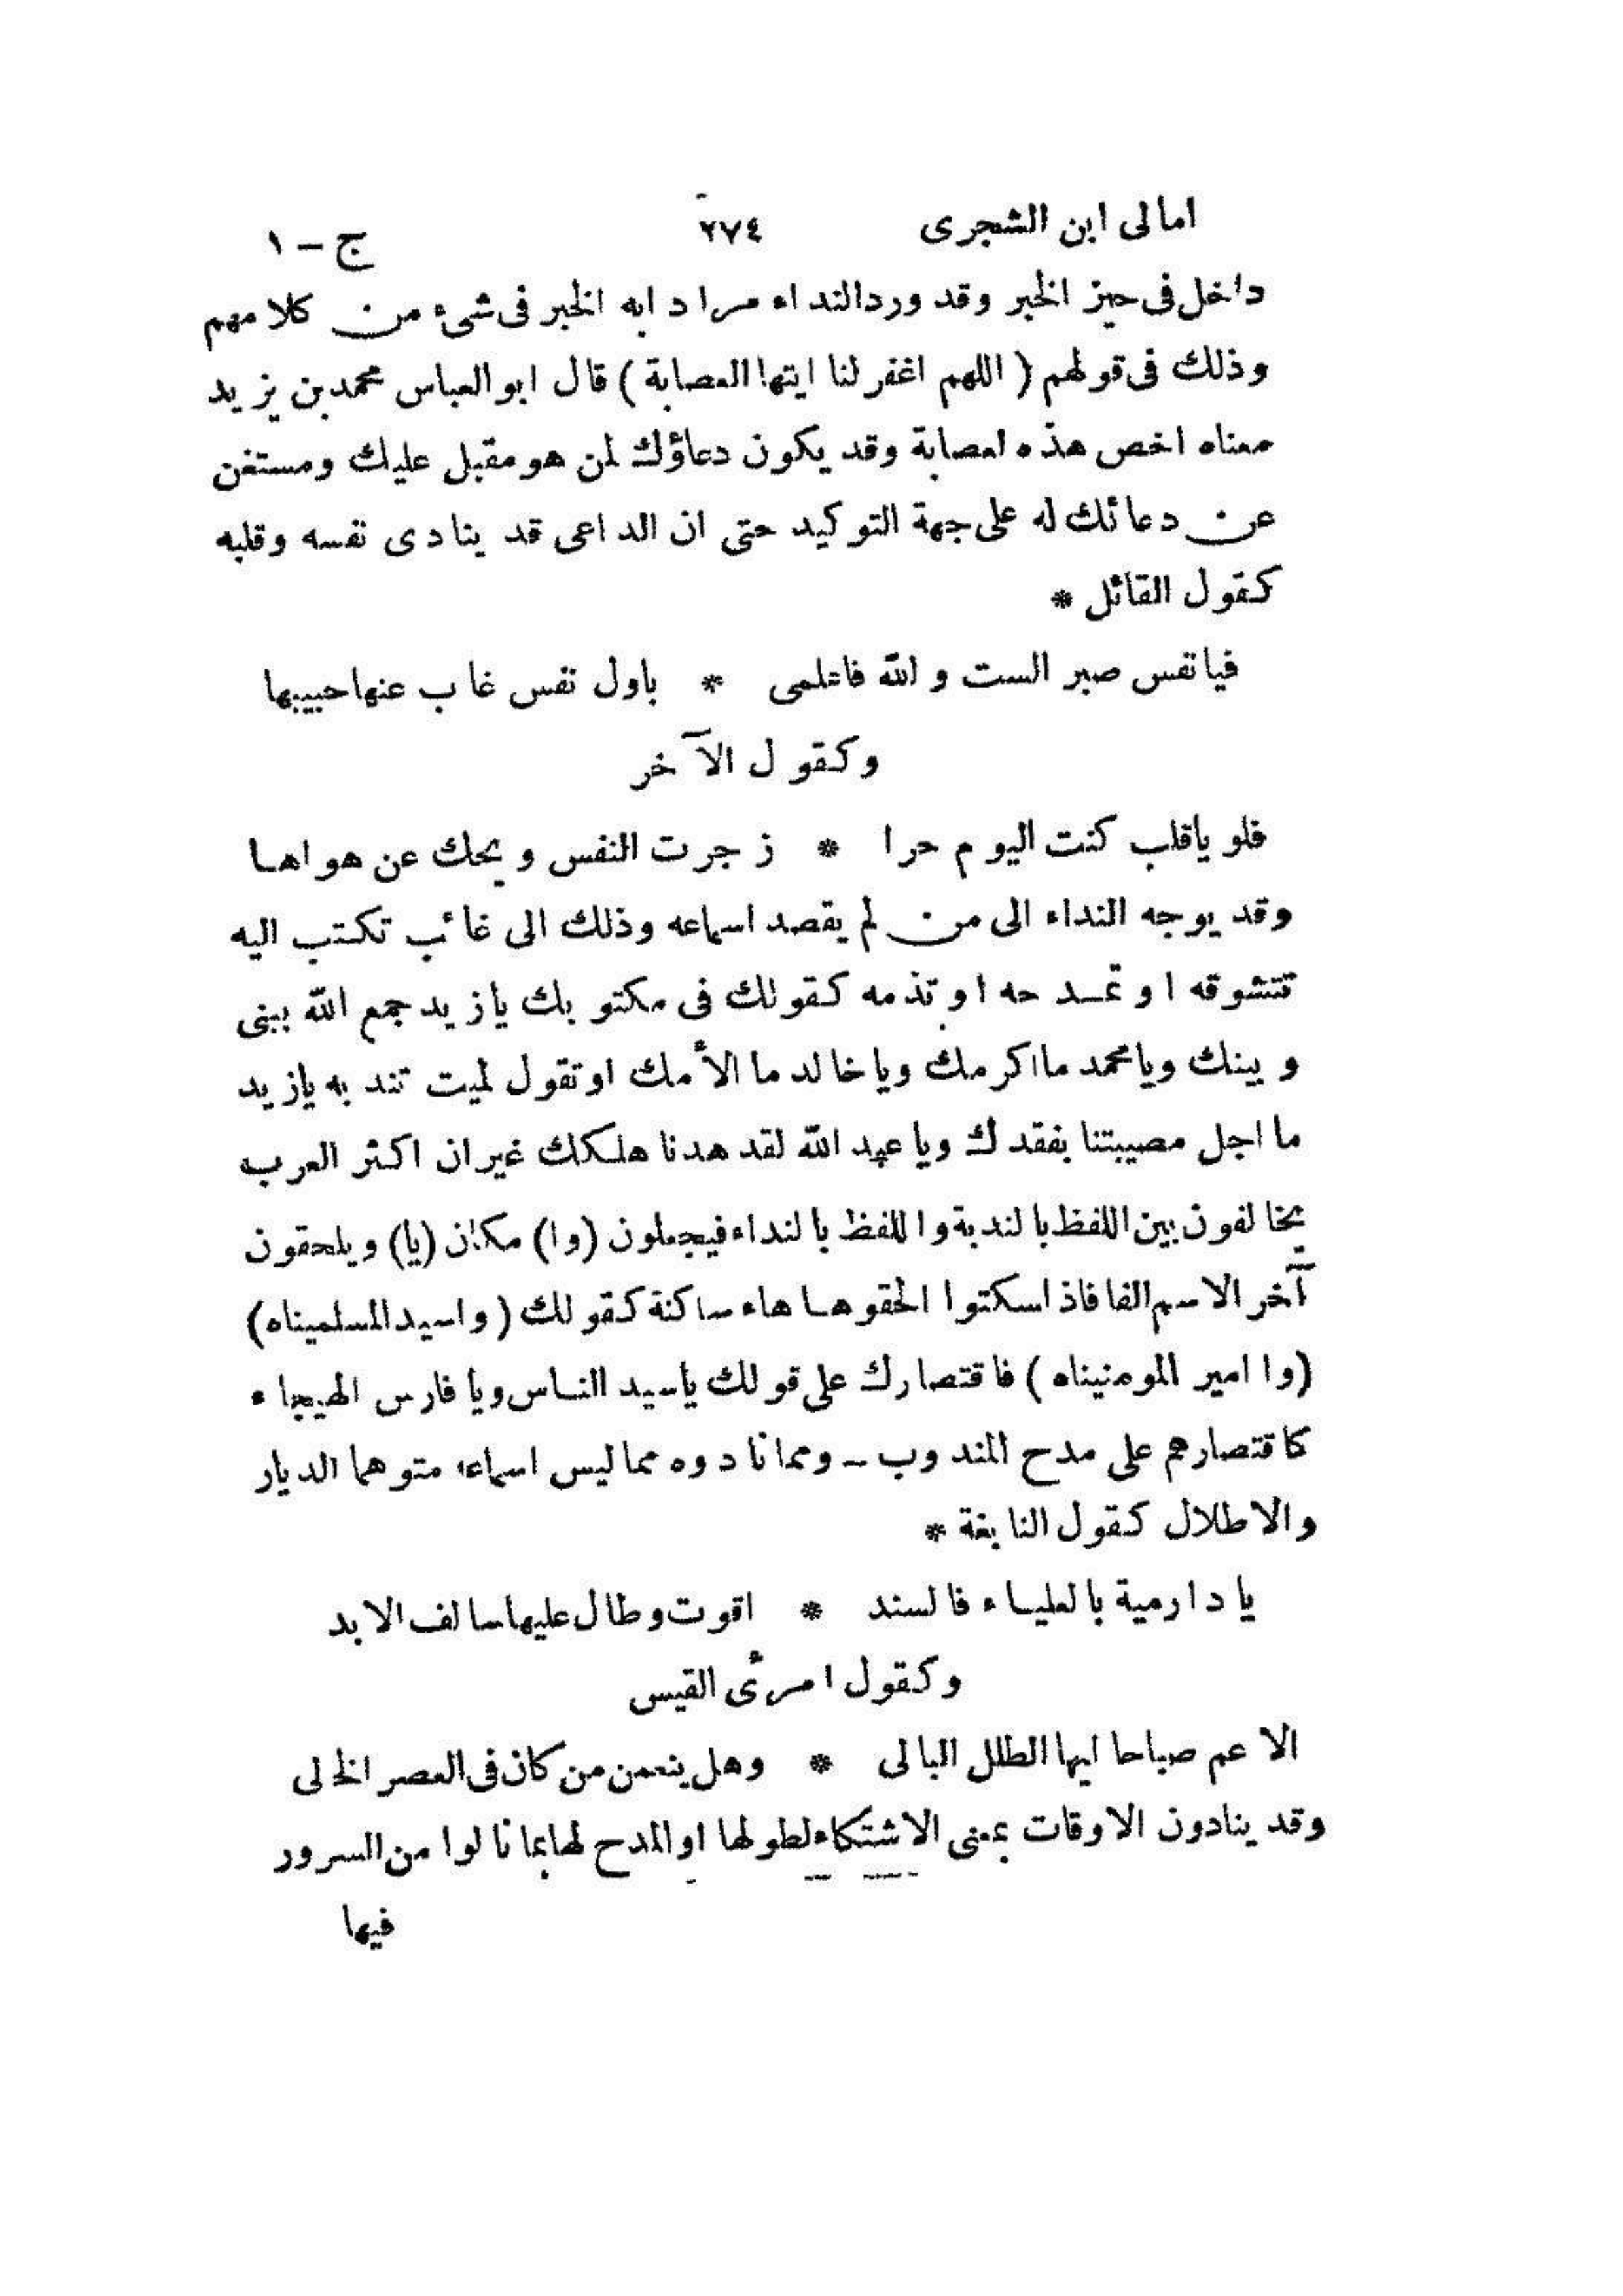 امالى ابن الشجرى ٢٧٤ ج – ١
داخل فى حيز الخبر وقد ورد النداء مرادا به الخبر فى شىء من كلامهم
وذلك فى قولهم ( اللهم اغفر لنا ايتها العصابة ) قال ابو العباس محمد بن يزيد
معناه اخص هذه لعصابة وقد يكون دعاؤك لمن هو مقبل عليك ومستغن
عن دعائك له على جهة التوكيد حتى ان الداعى قد ينادى نفسه وقلبه
كقول القائل *
فيا نفس صبر الست والله فاعلمى * باول نفس غاب عنها حبيبها
وكقول الآخر
فلو يا قلب كنت اليوم حرا * زجرت النفس ويحك عن هواها
وقد يوجه النداء الى من لم يقصد اسماعه وذلك الى غائب تكتب اليه
تتشوقه او تمدحه او تذمه كقولك فى مكتوبك يا زيد جمع الله بينى
وبينك ويا محمد ما اكرمك ويا خالد ما الأمك او تقول لميت تندبه يا زيد
ما اجل مصيبتنا بفقدك ويا عبد الله لقد هدنا هلكك غير ان اكثر العرب
يخالفون بين اللفظ بالندبة واللفظ بالنداء فيجعلون (وا) مكان (يا) ويلحقون
آخر الاسم الفا فاذا سكتوا الحقوها هاء ساكنة كقولك ( واسيد المسلميناه)
(وا امير المومنيناه ) فاقتصارك على قولك يا سيد الناس ويا فارس الهيجاء
كاقتصارهم على مدح المندوب – ومما نادوه مما ليس اسماعه متوهما الديار
والاطلال كقول النابغة *
يا دارمية بالعلياء فالسند * اقوت وطال عليها سالف الابد
وكقول امرئ القيس
الا عم صباحا ايها الطلل البالى * وهل ينعمن من كان فى العصر الخالى
وقد ينادون الاوقات بمعنى الاشتكاء لطولها او المدح لها بما نالوا من السرور
فيها